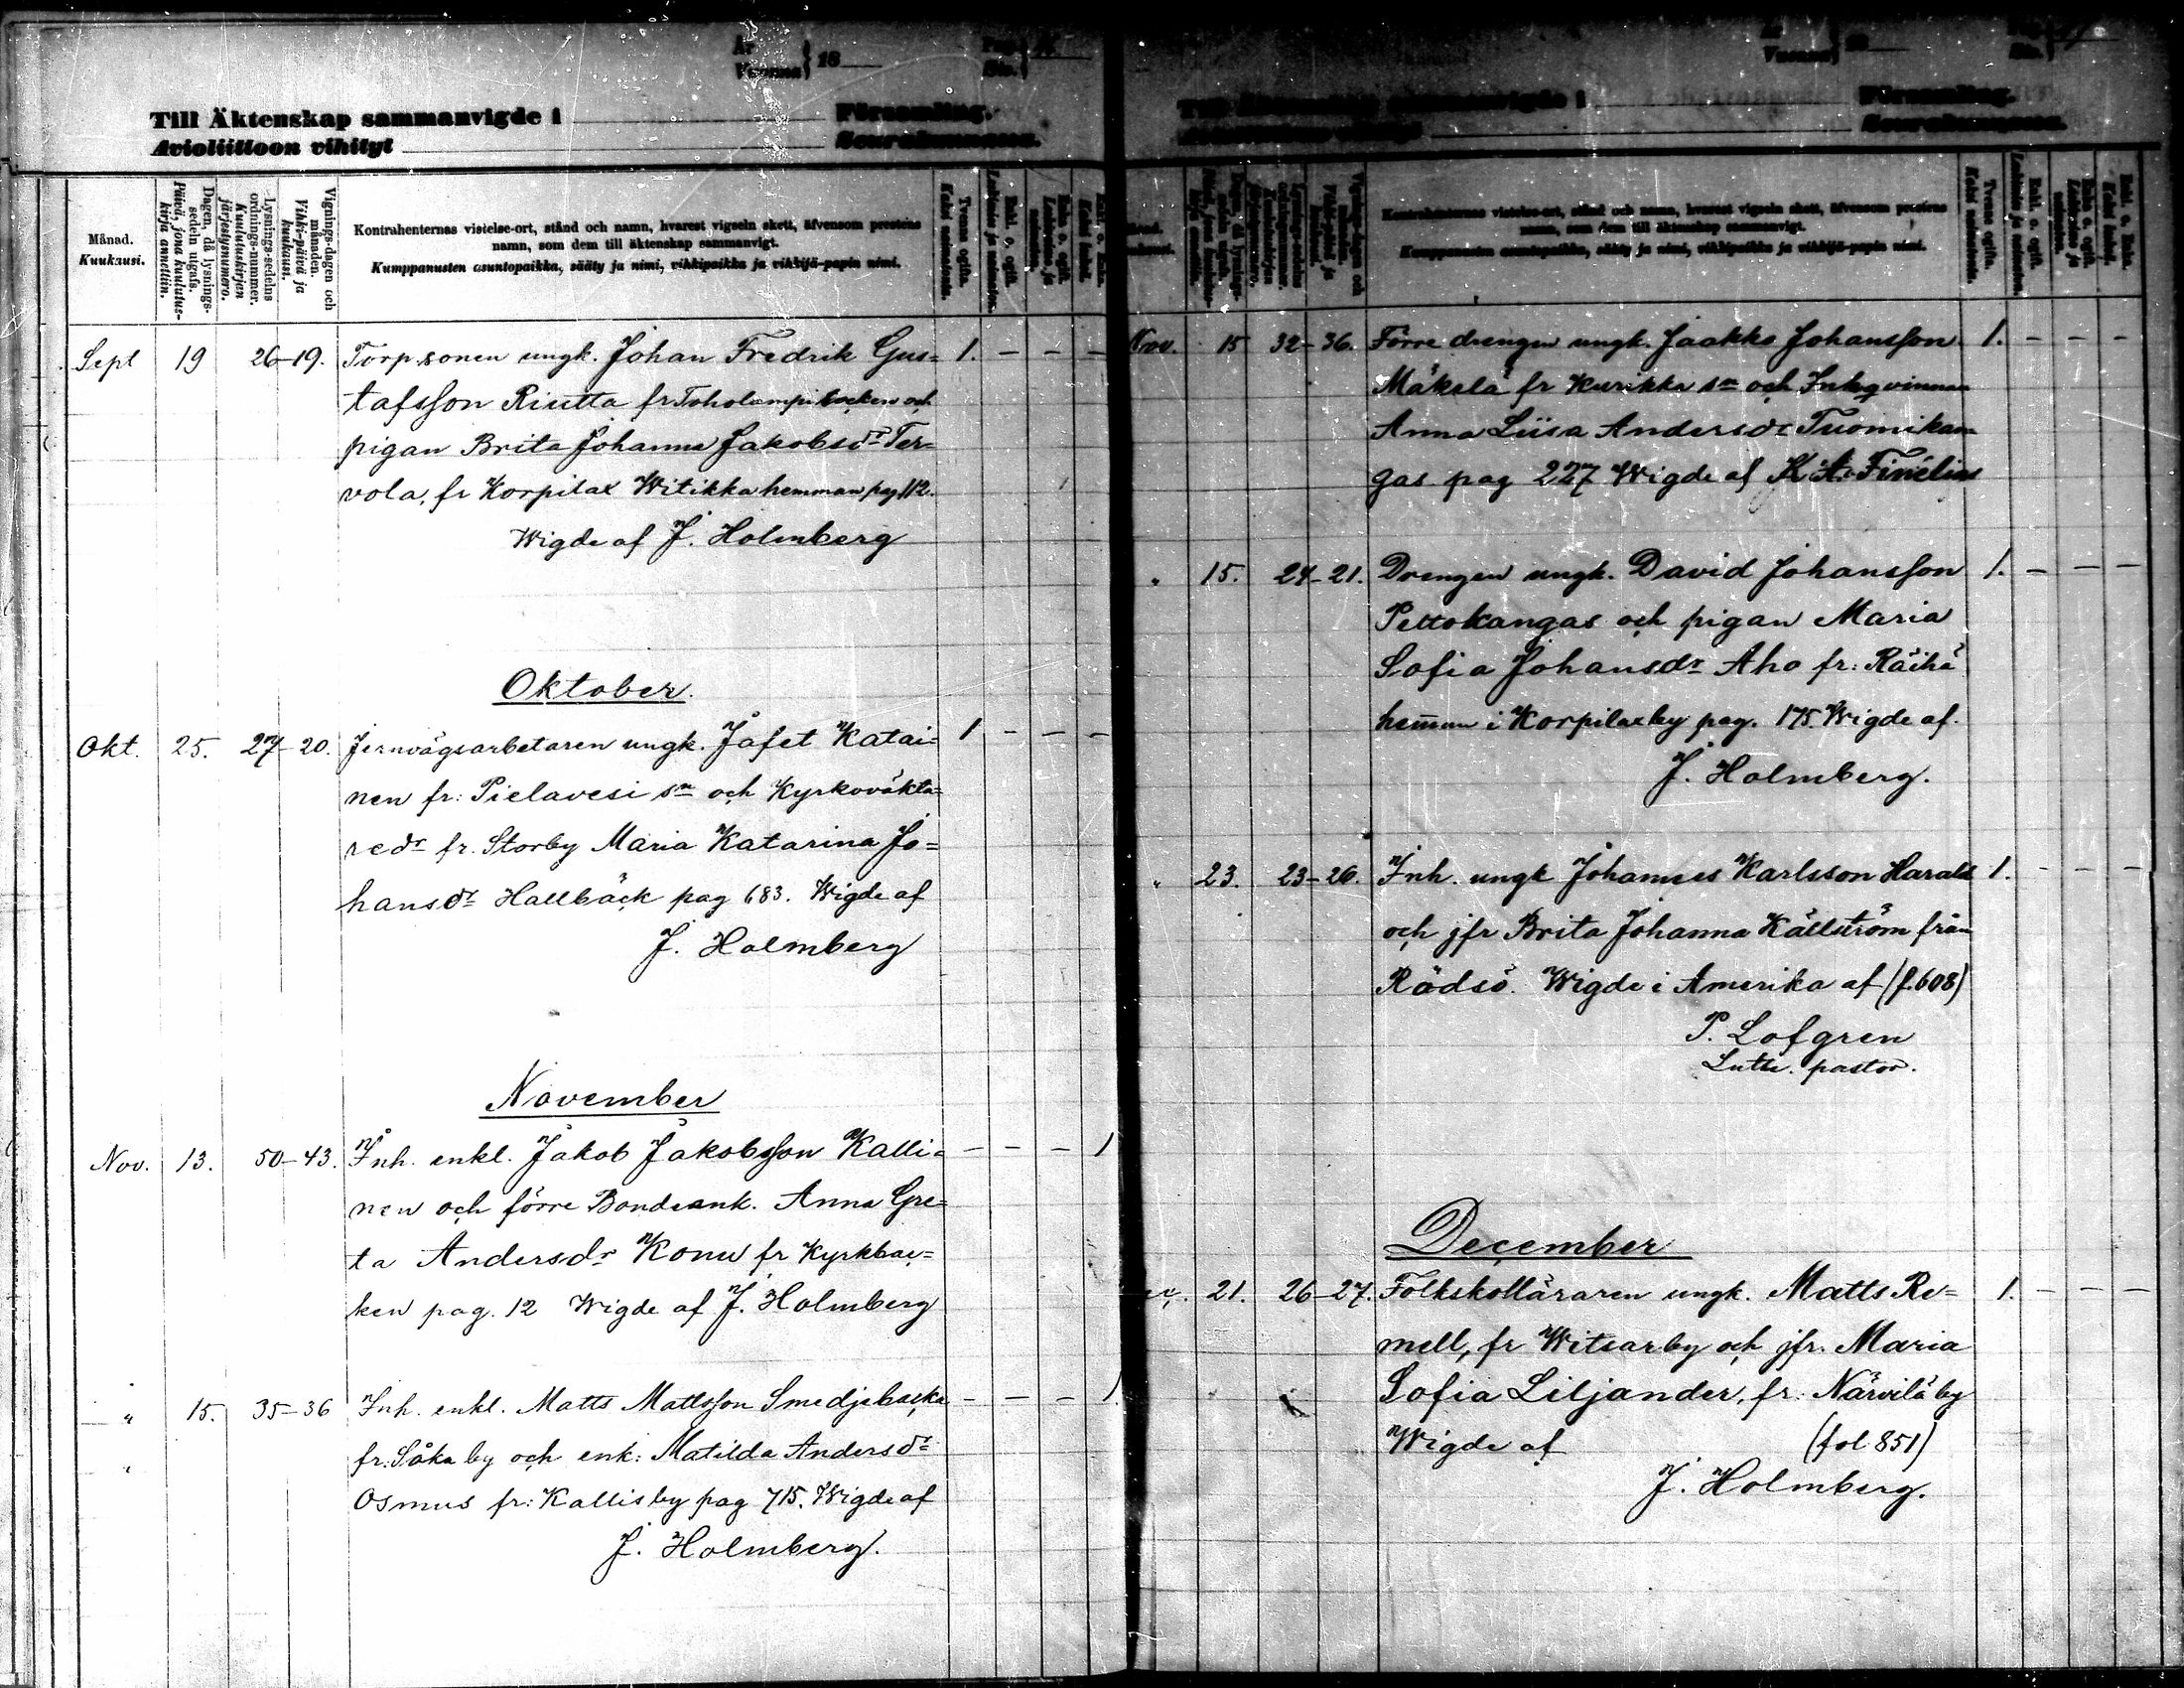 År
Vuonna } 18
Pag.
Siv.
Till Äktenskap sammanvigde i Församling.
Avioliittoon vihityt Seurakunnassa.
Månad.
Kuukausi.
Dagen, då lysnings-
sedeln utgafs.
Päivä, jona kuulutus-
kirja annettiin.
Lysnings-sedelns
ordnings-nummer.
Kuulutuskirjan
järjestysnumero.
Vignings-dagen och
månaden.
Vihki-päivä ja
kuukausi.
Kontrahenternas vistelse-ort, stånd och namn, hvarest vigseln skett, äfvensom prestens
namn, som dem till äktenskap sammanvigt.
Kumppanusten asuntopaikka, sääty ja nimi, vihkipaikka ja vihkijä-papin nimi.
Tvenne ogifta.
Kaksi naimatonta.
Sept 19 26-19. Torp.sonen ungk. Johan Fredrik Gus= 1. - - -
tafsson Riutta fr Toholampi socken och
pigan Brita Johanna Jakobsdr Ter=
vola, fr Korpilax Witikka hemman pag 112.
Wigde af J. Holmberg
Oktober.
Okt. 25. 27-20. Jernvägsarbetaren ungk. Jafet Katai= 1 - - -
nen fr: Pielavesi sn och Kyrkoväkta=
redr fr. Storby Maria Katarina Jo=
hansdr Hallbäck pag 683. Wigde af
J. Holmberg
November
Nov. 13. 50-43. Inh. enkl. Jakob Jakobsson Kalli= - - - 1
nen och förre Bondeenk. Anna Gre=
ta Andersdr Konu fr Kyrkbac=
ken pag. 12 Wigde af J. Holmberg
" 15. 35-36 Inh. enkl. Matts Mattsson Smedjebacka - - - 1.
fr: Såka by och enk: Matilda Andersdr
Osmus fr: Kallis by pag 715. Wigde af
J. Holmberg.
Till Äktenskap sammanvigde i Församling.
Avioliittoon vihityt Seurakunnassa.
Kontrahenternas vistelse-ort, stånd och namn, hvarest vigseln skett, äfvensom prestens
namn, som dem till äktenskap sammanvigt.
Kumppanusten asuntopaikka, sääty ja nimi, vihkipaikka ja vihkijä-papin nimi.
Nov. 15 32-36. Förre drengen ungk. Jaakko Johansson 1. - - -
Mäkelä fr Kurikka sn och Inhqvinnan
Anna Liisa Andersdr Tuomikan
gas pag 227 Wigde af K. A. Finélius
" 15. 24-21. Drengen ungk. David Johansson 1. - - -
Peltokangas och pigan Maria
Sofia Johansdr Aho fr: Räihä
hemman i Korpilax by pag. 175. Wigde af.
J. Holmberg.
" 23. 23-26. Inh. ungk Johannes Karlsson Harald 1. - - -
och jfr Brita Johanna Källström från
Rödsö. Wigde i Amerika af (f.608)
P. Lofgren
Luthe. pastor.
December
21. 26-27. Folkskolläraren ungk. Matts Re= 1. - - -
mell, fr Witsar by och jfr. Maria
Sofia Liljander, fr: Närvilä by
Wigde af (fol 851)
J. Holmberg.